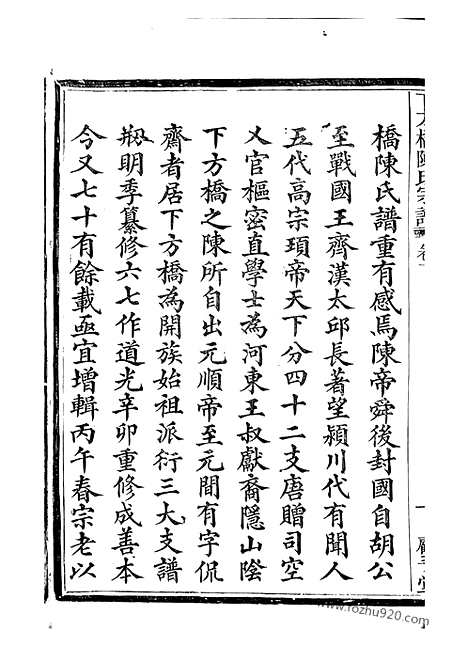 橋陳氏譜重有感焉陳帝舜後封國自胡公
至戰國王齊漢太邱長著望潁川代有聞人
五代高宗頊帝天下分四十二支唐贈司空
乂官樞密直學士為河東王叔獻裔隱山陰
下方橋之陳所自出元順帝至元間有字侃
齋者居下方橋為開族始祖派衍三大支譜
剏明季纂修六七作道光辛卯重修成善本
今又七十有餘載亟宜增輯丙午春宗老以
www.fozhu920.com